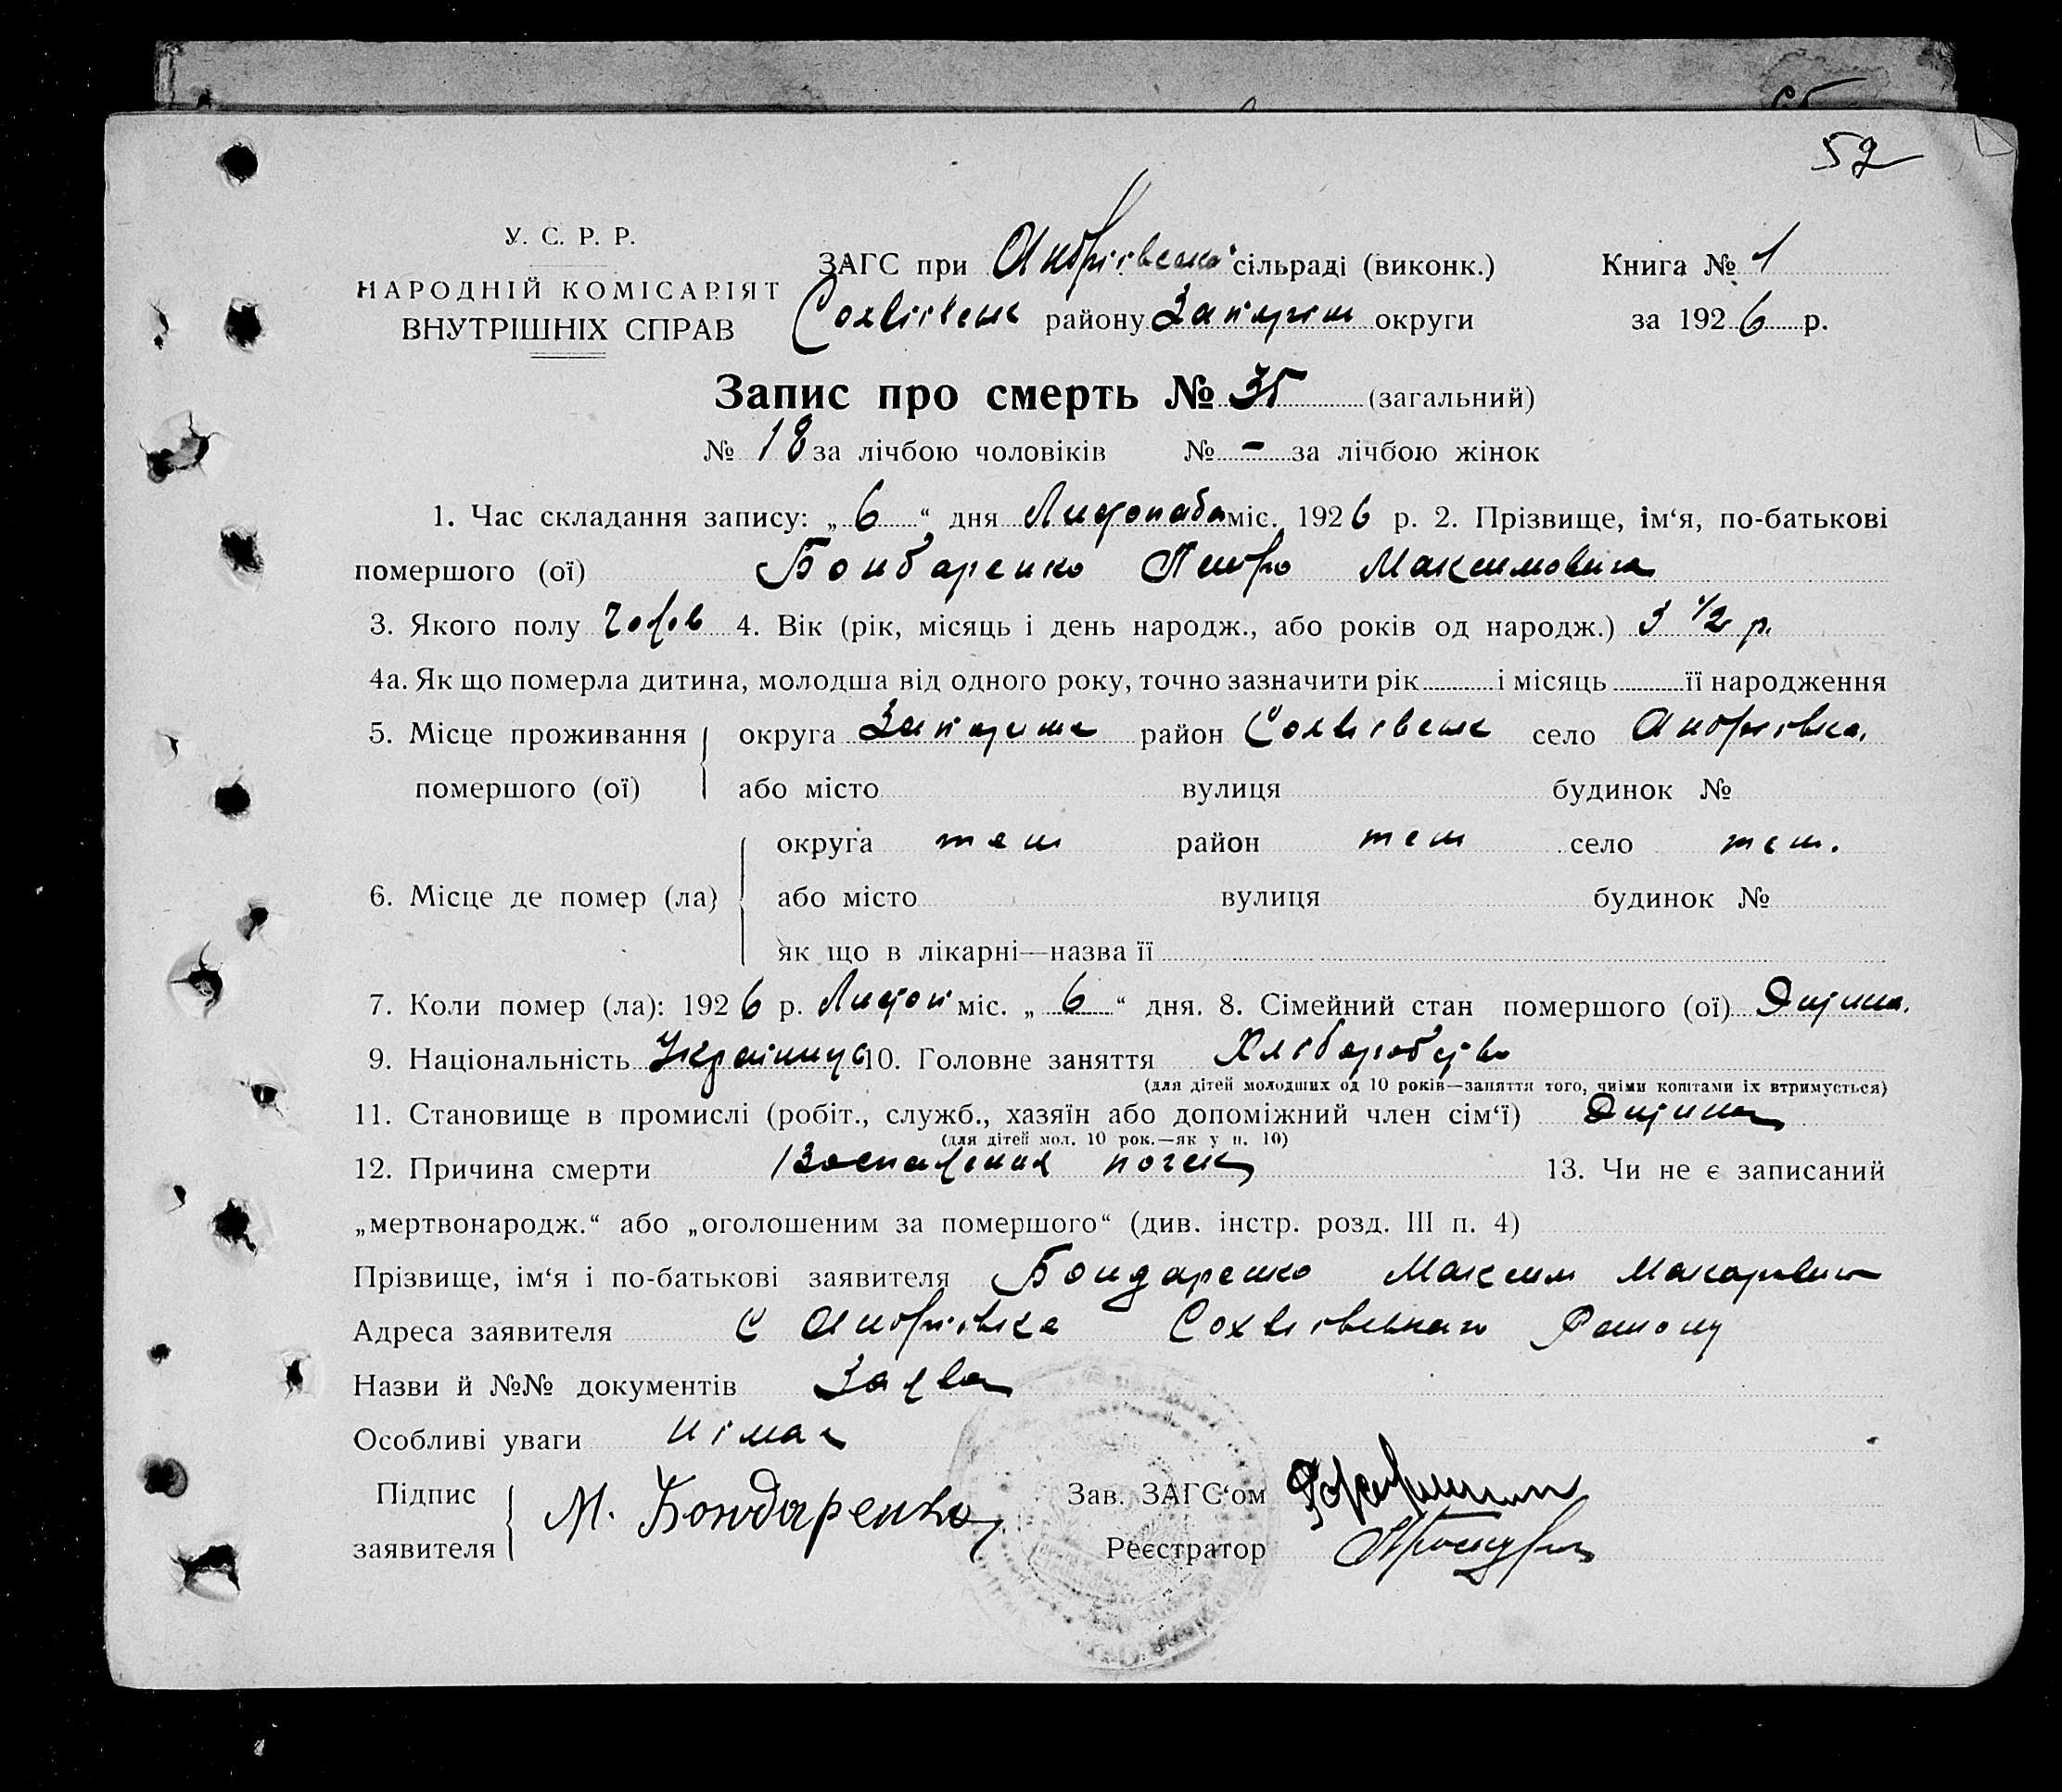 52
У. С. Р. Р.
НАРОДНІЙ КОМІСАРІЯТ
ВНУТРІШНІХ СПРАВ
ЗАГС при Андріївській сільраді (виконк.) Книга № 1
Софіївськ району Запоріш округи за 1926 р.
Запис про смерть № 35 (загальний)
№ 18 за лічбою чоловіків № - за лічбою жінок
1. Час складання запису: „6“ дня Листопада міс. 1926 р. 2. Прізвище, ім‘я, по-батькові
помершого (ої) Бондаренко Петро Максимович
3. Якого полу Чолов 4. Вік (рік, місяць і день народж., або років од народж.) 3 1/2 р.
4а. Як що померла дитина, молодша від одного року, точно зазначити рік і місяць її народження
5. Місце проживання округа район село Андріївка.
помершого (ої) або місто вулиця будинок №
округа теш район теш село теш.
6. Місце де помер (ла) або місто вулиця будинок №
як що в лікарні—назва її
7. Коли помер (ла): 1926 р. Листоп міс. „6“ дня. 8. Сімейний стан помершого (ої) Дитина.
9. Національність Українец 10. Головне заняття Хліборобство
(для дітей молодших од 10 років—заняття того, чиїми коштами їх втримується)
11. Становище в промислі (робіт., служб., хазяїн або допоміжний член сім‘ї) Дитина
(для дітей мол. 10 рок.—як у п. 10)
12. Причина смерти Воспаления почек 13. Чи не є записаний
„мертвонародж.“ або „оголошеним за помершого“ (див. інстр. розд. III п. 4)
Прізвище, ім‘я і по-батькові заявителя Бондаренко Максим Макарович
Адреса заявителя С Андріівка Району
Назви й №№ документів Заява
Особливі уваги німає
Підпис М. Бондаренко Зав. ЗАГС‘ом
заявителя Реєстратор